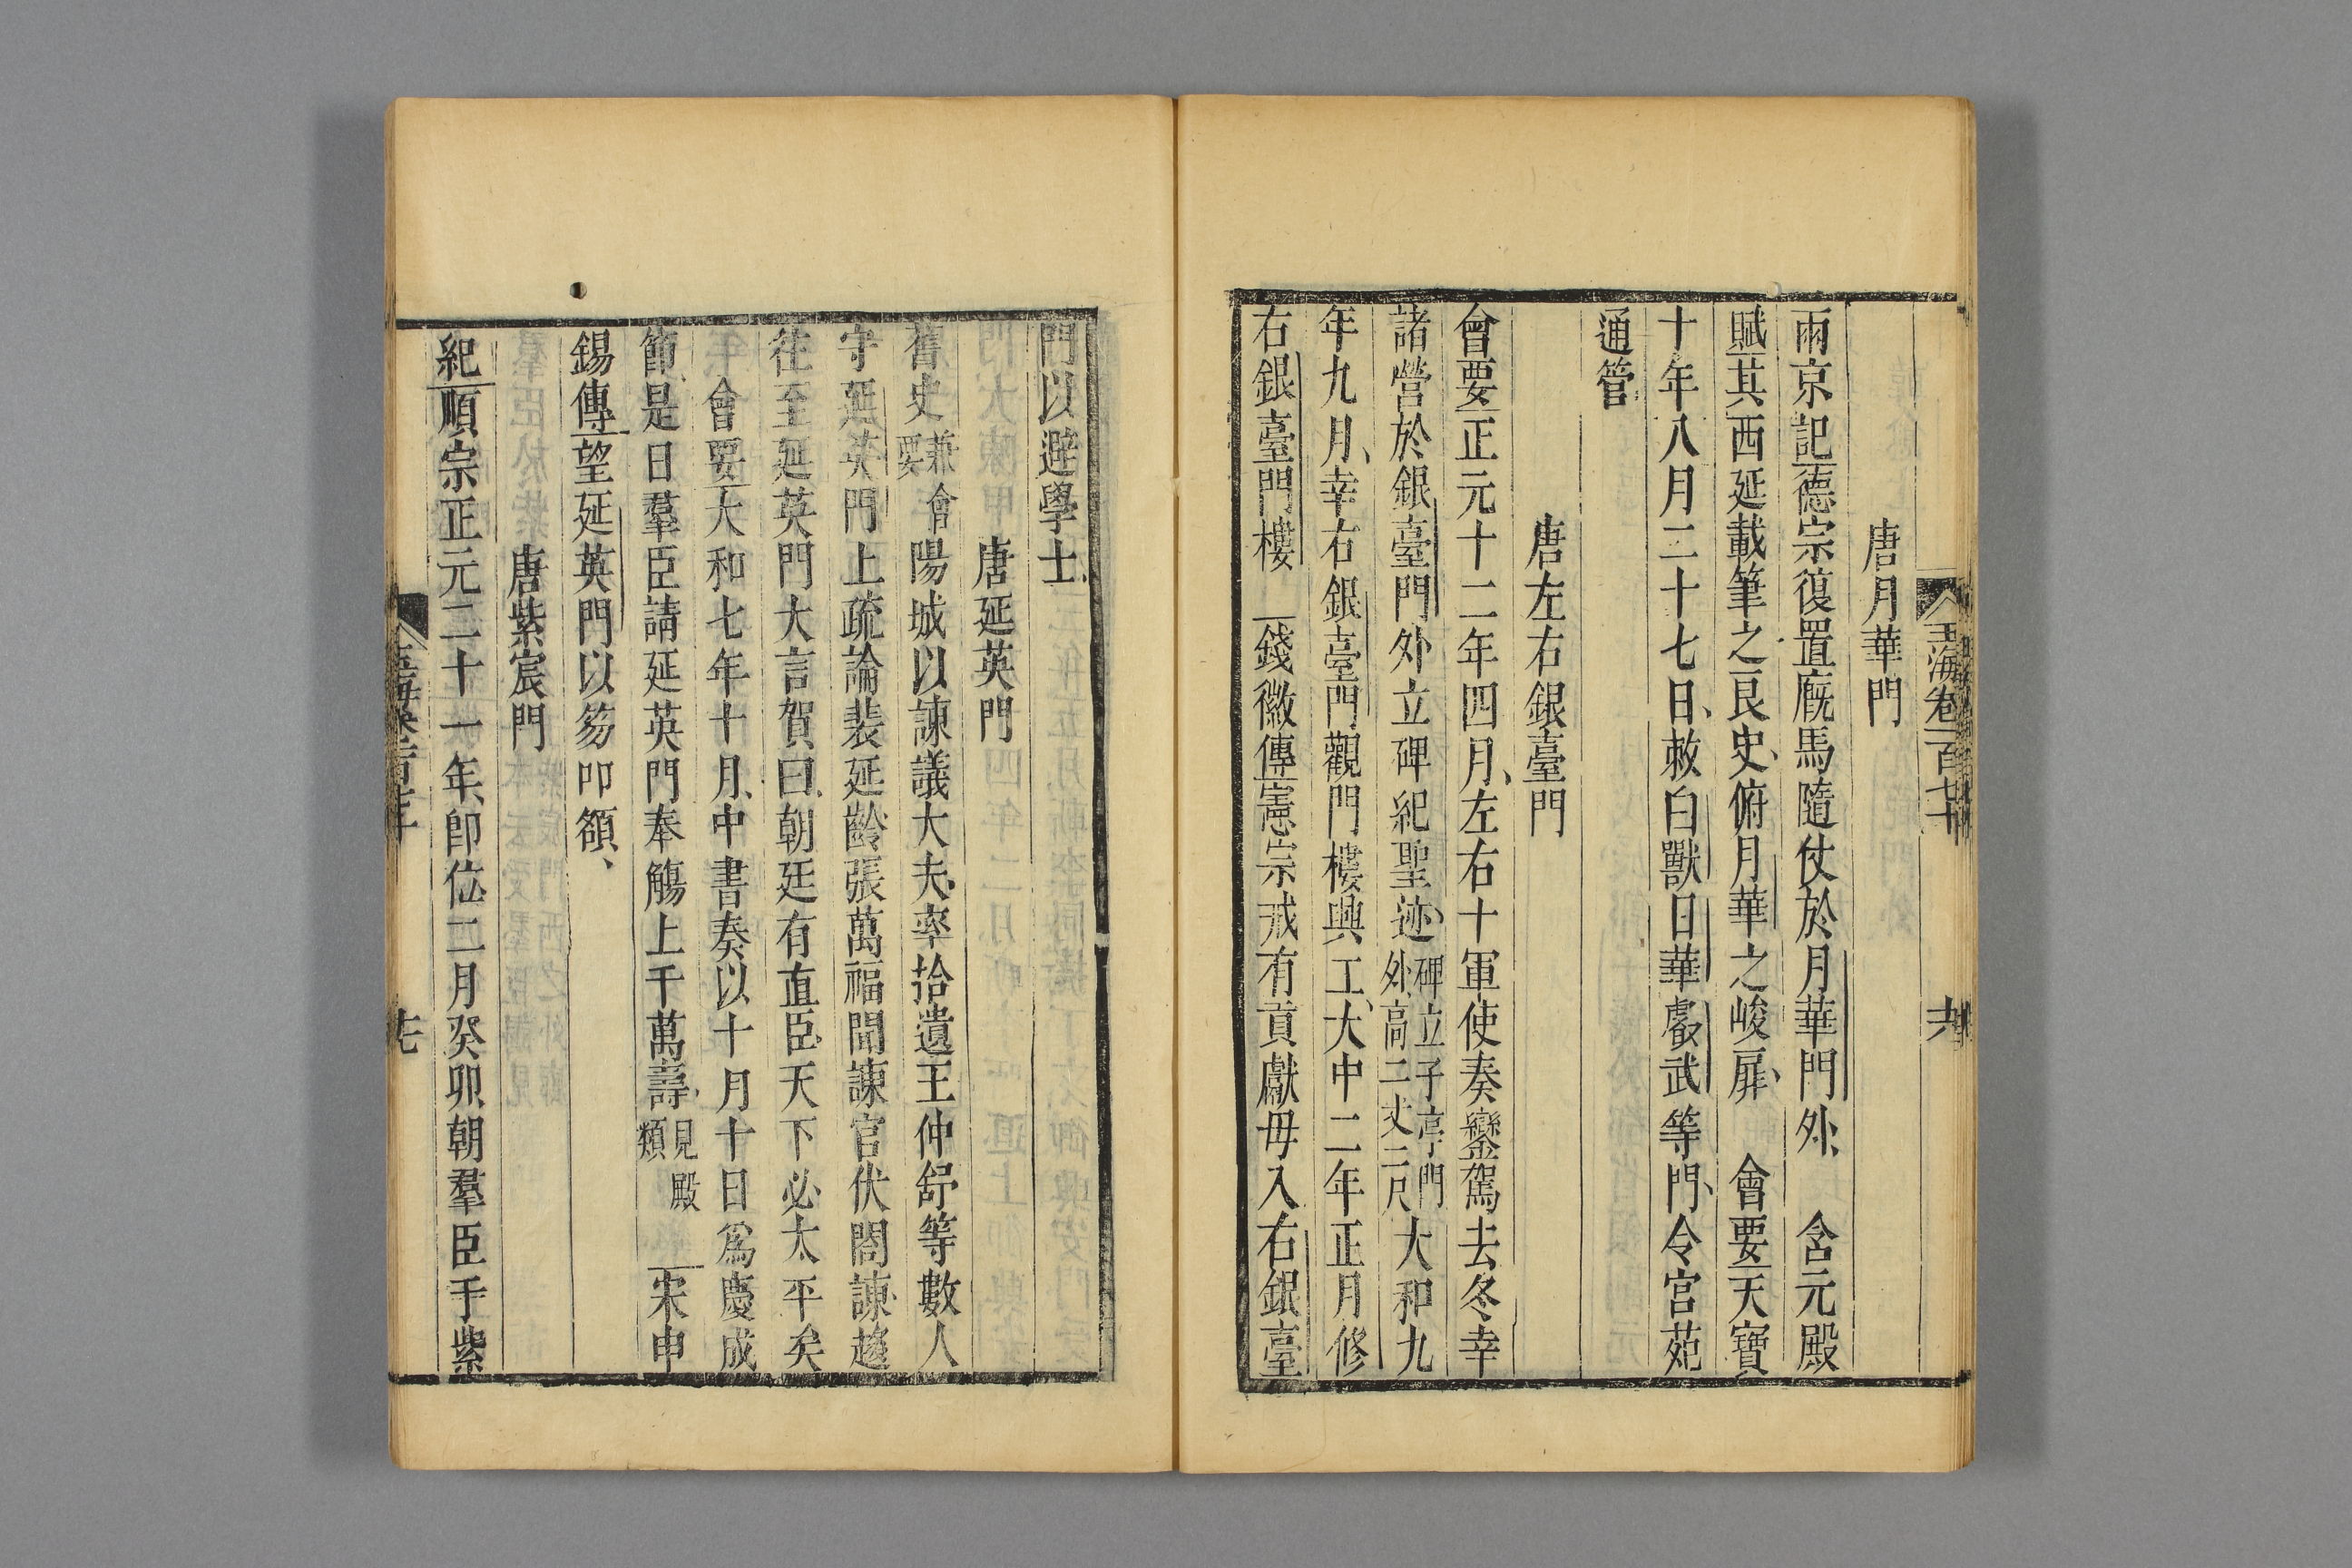 玉海卷一百七十
六
唐月華門
兩京記德宗復置廐馬隨仗於月華門外 含元殿
賦其西延載筆之良史俯月華之峻扉 會要天寶
十年八月二十七日敕白獸日華䖍武等門令宮苑
通管
唐左右銀臺門
會要正元十二年四月左右十軍使奏鑾駕去冬幸
諸營於銀臺門外立碑紀聖迹碑立子亭門外高二丈二尺大和九
年九月幸右銀臺門觀門樓興工大中二年正月修
右銀臺門樓 錢徽傳憲宗戒有貢獻毋入右銀臺
門以避學士
唐延英門
舊史兼會要陽城以諫議大夫率拾遺王仲舒等數人
守延英門上疏論裴延齡張萬福聞諫官伏閤諫趨
往至延英門大言賀曰朝廷有直臣天下必太平矣
會要大和七年十月中書奏以十月十日爲慶成
節是日羣臣請延英門奉觴上千萬壽見殿類 宋申
錫傳望延英門以笏叩額
唐紫宸門
紀順宗正元二十一年即位二月癸卯朝羣臣于紫